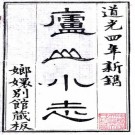 道光四年新鐫
廬山小志
嫏嬛別館藏板